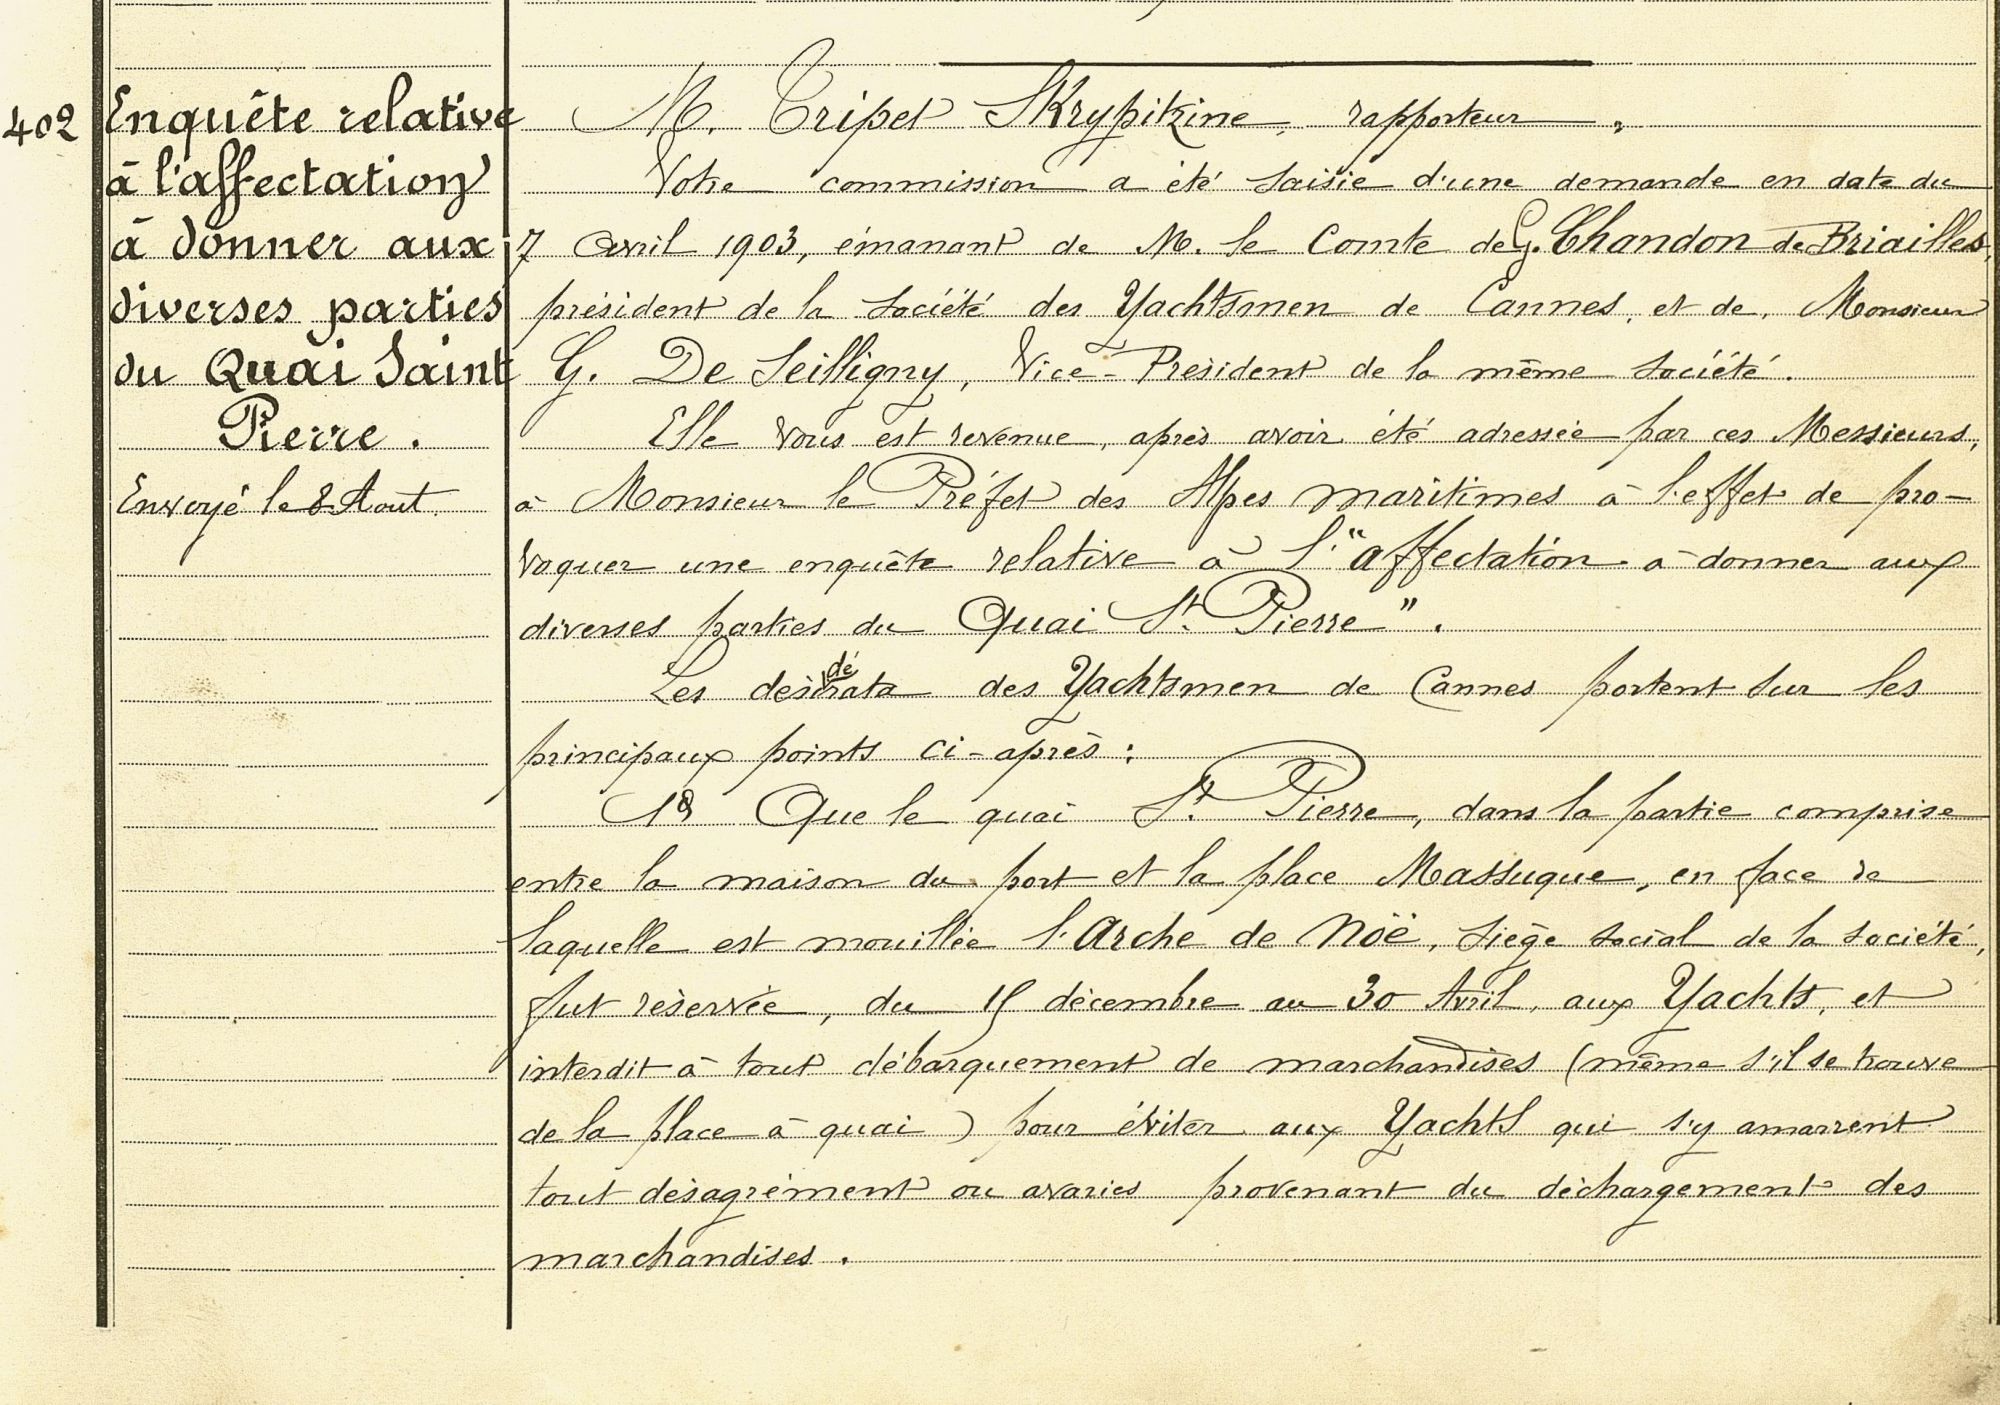 402
Enquête relative
à l'affectation
à donner aux
diverses parties
du Quai Saint
Pierre.
Envoyé le 8 Aout
M. Tripet Skrypitzine, rapporteur,
Votre commission a été saisie d'une demande en date du
7 Avril 1903, émanant de M. le Comte de G. Chandon de Briailles,
président de la société des Yachtsmen de Cannes, et de, Monsieur
G. De Seilligny, Vice-Président de la même société.
Elle vous est revenue, après avoir été adressée par ces Messieurs,
à Monsieur le Préfet des Alpes maritimes à l'effet de pro-
voquer une enquête relative à l'"affectation à donner aux
diverses parties du Quai St. Pierre".
Les desidérata des Yachtsmen de Cannes portent sur les
principaux points ci-après :
1° Que le quai St. Pierre, dans la partie comprise
entre la maison du port et la place Massuque, en face de
laquelle est mouillée l'Arche de Noë, siège social de la société,
fut réservée, du 15 décembre au 30 Avril, aux Yachts, et
interdit à tout débarquement de marchandises (même s'il se trouve
de la place à quai) pour éviter aux Yachts qui s'y amarrent
tout désagrément ou avaries provenant du déchargement des
marchandises.